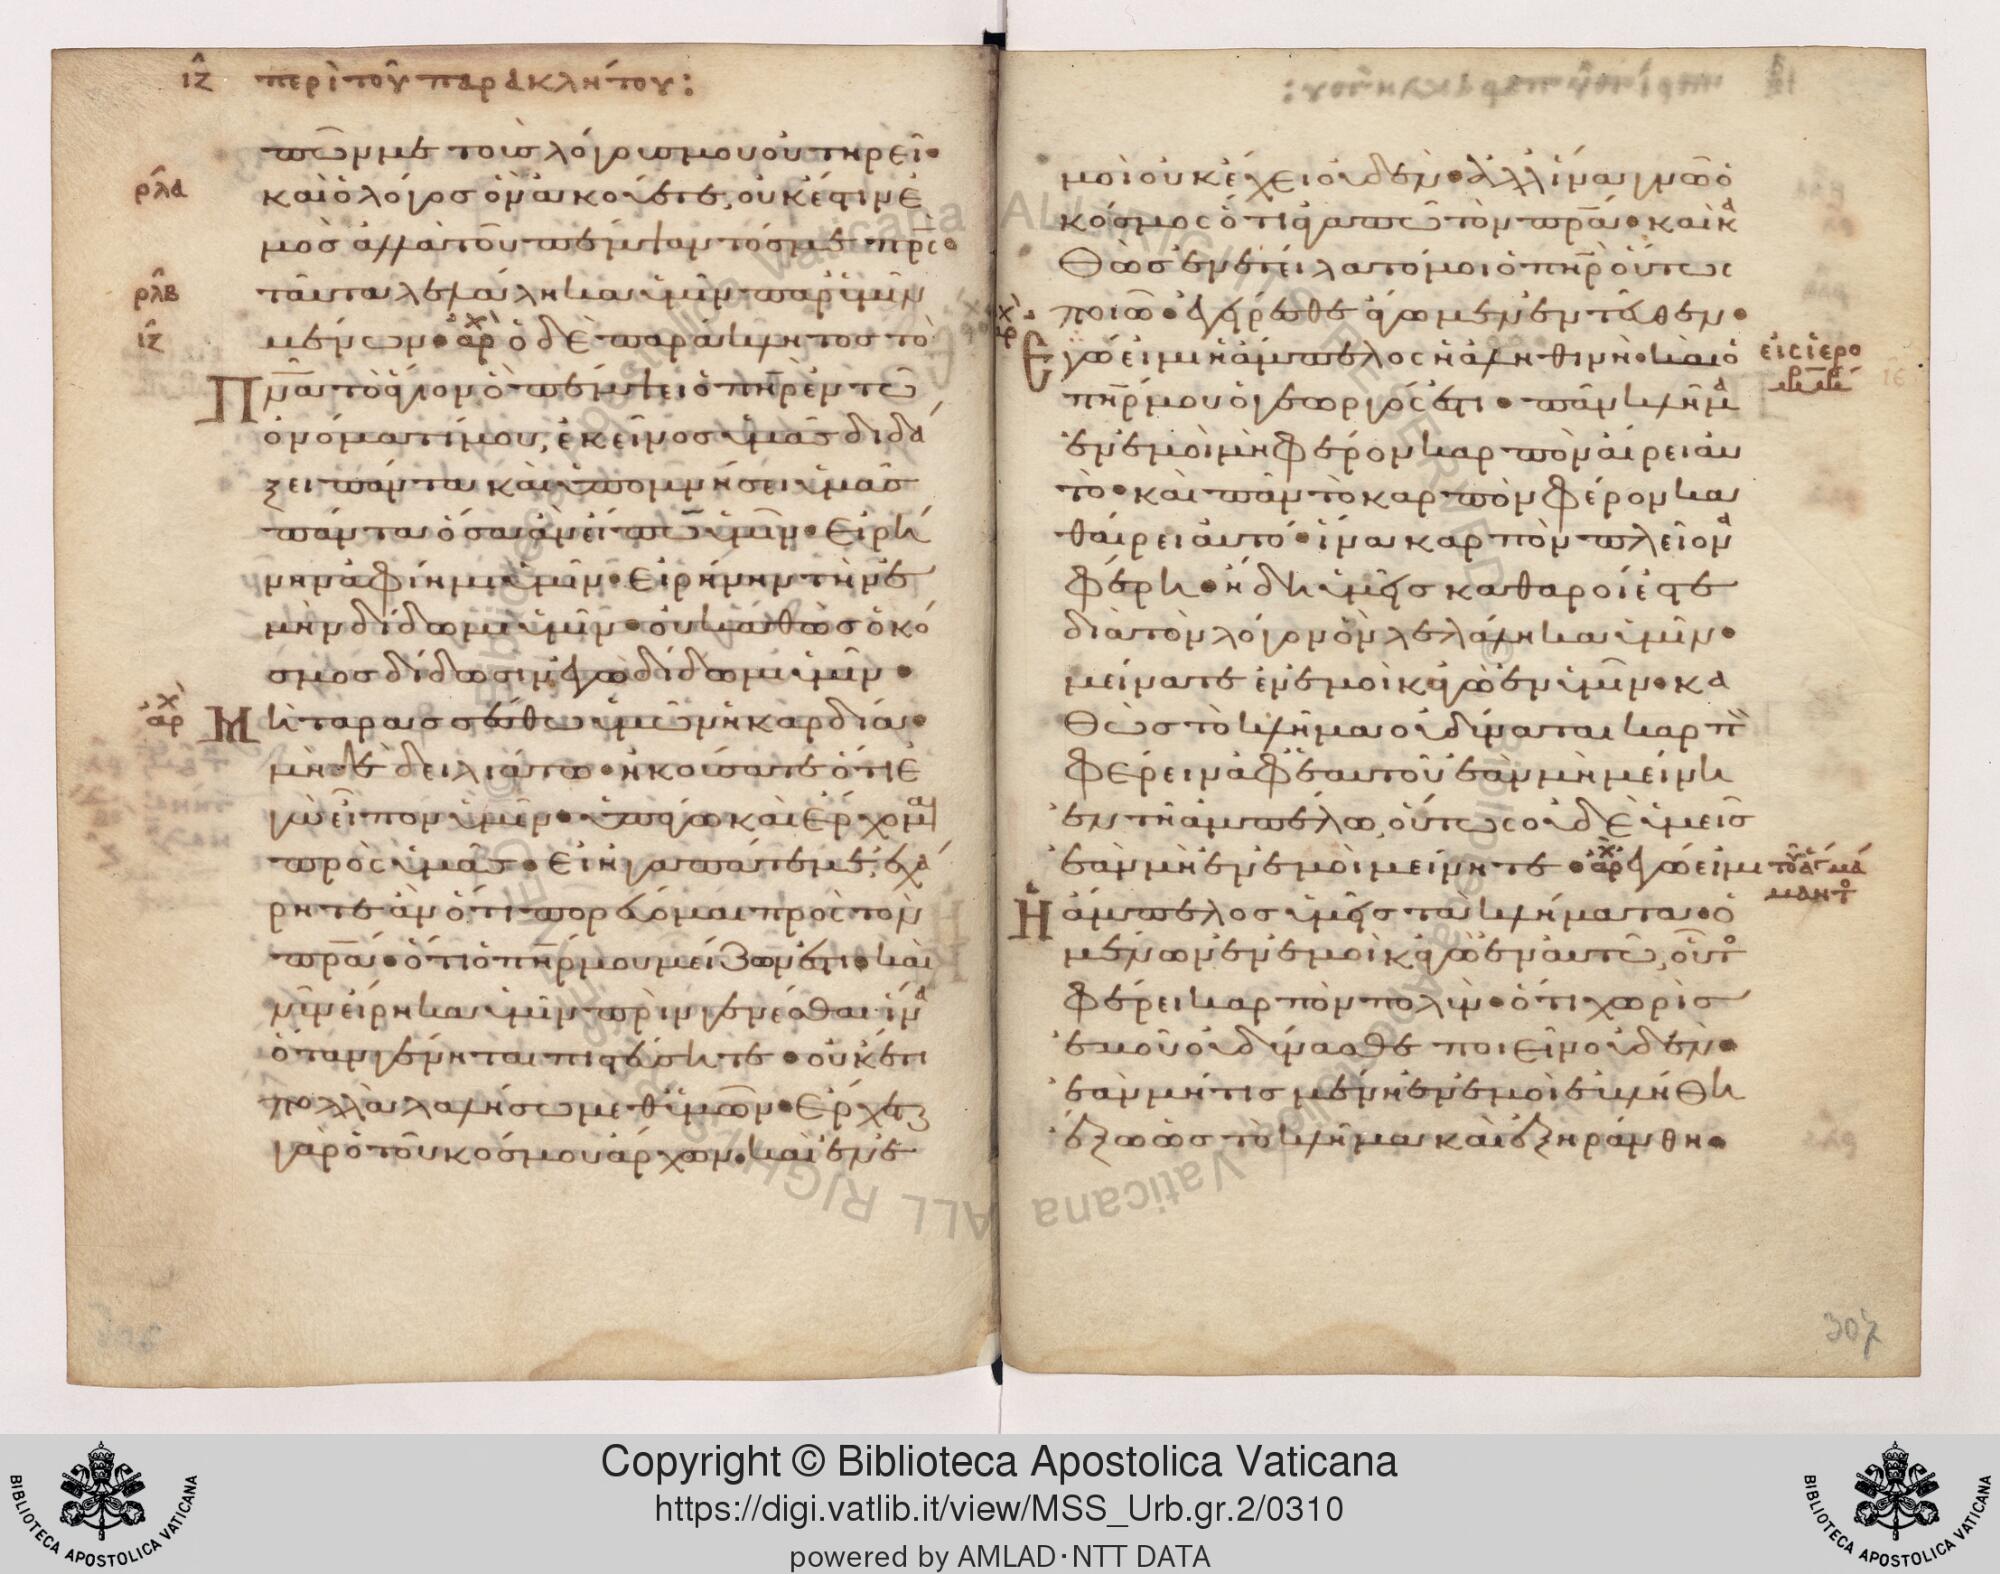 ιζ περὶ τοῦ παρακλήτου:
πῶν με τοὺς λόγους μου οὐ τηρεῖ·
ρλα καὶ ὁ λόγος ὃν ἀκούετε, οὐκ ἔστιν ἐ
μὸς ἀλλὰ τοῦ πέμψαντός με πρς·
ρλβ ταῦτα λελάληκα ὑμῖν παρ' ὑμῖν
ιζ μένων· ἀρχ ὁ δὲ παράκλητος τὸ
πνα τὸ ἅγιον, ὃ πέμψει ὁ πηρ ἐν τῶ
ὀνόματί μου, ἐκεῖνος ὑμᾶς διδά
ξει πάντα καὶ ὑπομνήσει ὑμᾶς
πάντα ὅσα ἂν εἴπω ὑμῖν· εἰρή
νην ἀφίημι ὑμῖν· εἰρήνην τὴν ἐ
μὴν δίδωμι ὑμῖν· οὐ καθὼς ὁ κό
σμος δίδωσιν ἐγὼ δίδωμι ὑμῖν·
ἀρχ Μὴ ταρασσέσθω ὑμῶν ἡ καρδία·
μηδὲ δειλιάτω· ἠκούσατε ὅτι ἐ
γὼ εἶπον ὑμῖν· ὑπάγω καὶ ἔρχομαι
πρὸς ὑμᾶς· εἰ ἠγαπᾶτέ με, ἐχά
ρητε ἂν ὅτι πορεύομαι πρὸς τὸν
πρα· ὅτι ὁ πηρ μου μείζων ἐστί· καὶ
νῦν εἴρηκα ὑμῖν πρὶν γενέσθαι ἵνα
ὅταν γένηται πιστεύσητε· οὐκέτι
πολλὰ λαλήσω μεθ' ὑμῶν· ἔρχεται
γὰρ ὁ τοῦ κόσμου ἄρχων· καὶ ἐν ἐ
μοὶ οὐκ ἔχει οὐδέν· ἀλλ' ἵνα γνῶ ὁ
κόσμος ὅτι ἀγαπῶ τὸν πρα· καὶ κα
θὼς ἐνετείλατό μοι ὁ πηρ οὕτως
ποιῶ· ἐγείρεσθε ἄγωμεν ἐντεῦθεν·
ἀρχ Ἐγώ εἰμι ἡ ἄμπελος ἡ ἀληθινή· καὶ ὁ εἰς ἱερο
πηρ μου ὁ γεωργός ἐστι· πᾶν κλῆμα
ἐν ἐμοὶ μὴ φέρον καρπὸν αἴρει αὐ
τό· καὶ πᾶν τὸ καρπὸν φέρον κα
θαίρει αὐτό· ἵνα καρπὸν πλεῖονα
φέρη· ἤδη ὑμεῖς καθαροί ἐστε
διὰ τὸν λόγον ὃν λελάληκα ὑμῖν·
μείνατε ἐν ἐμοὶ κἀγὼ ἐν ὑμῖν· κα
θὼς τὸ κλῆμα οὐ δύναται καρπὸν
φέρειν ἀφ' ἑαυτοῦ ἐὰν μὴ μείνη
ἐν τῆ ἀμπέλω, οὕτως οὐδὲ ὑμεῖς
ἐὰν μὴ ἐν ἐμοὶ μείνητε· ἀρχ ἐγώ εἰμι
ἡ ἄμπελος ὑμεῖς τὰ κλήματα· ὁ
μένων ἐν ἐμοὶ κἀγὼ ἐν αὐτῶ, οὗτος
φέρει καρπὸν πολύν· ὅτι χωρὶς
ἐμοῦ οὐ δύνασθε ποιεῖν οὐδέν·
ἐὰν μή τις μένη ἐν ἐμοὶ ἐβλήθη
ἔξω ὡς τὸ κλῆμα καὶ ἐξηράνθη·
307
Copyright © Biblioteca Apostolica Vaticana
https://digi.vatlib.it/view/MSS_Urb.gr.2/0310
powered by AMLAD·NTT DATA
BIBLIOTECA APOSTOLICA VATICANA
BIBLIOTECA APOSTOLICA VATICANA